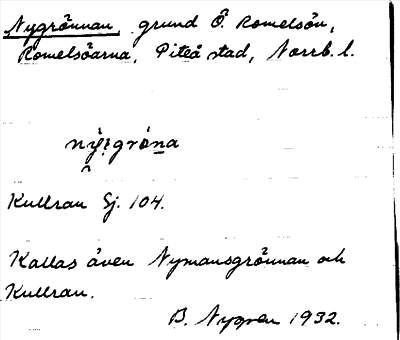 Nygrönnan, grund Ö. Romelsön,
Romelsöarna, Piteå stad, Norrb. l.
Kullran Sj. 104.
Kallas även Nymansgrönnan och
Kullran.
B. Nygren 1932.